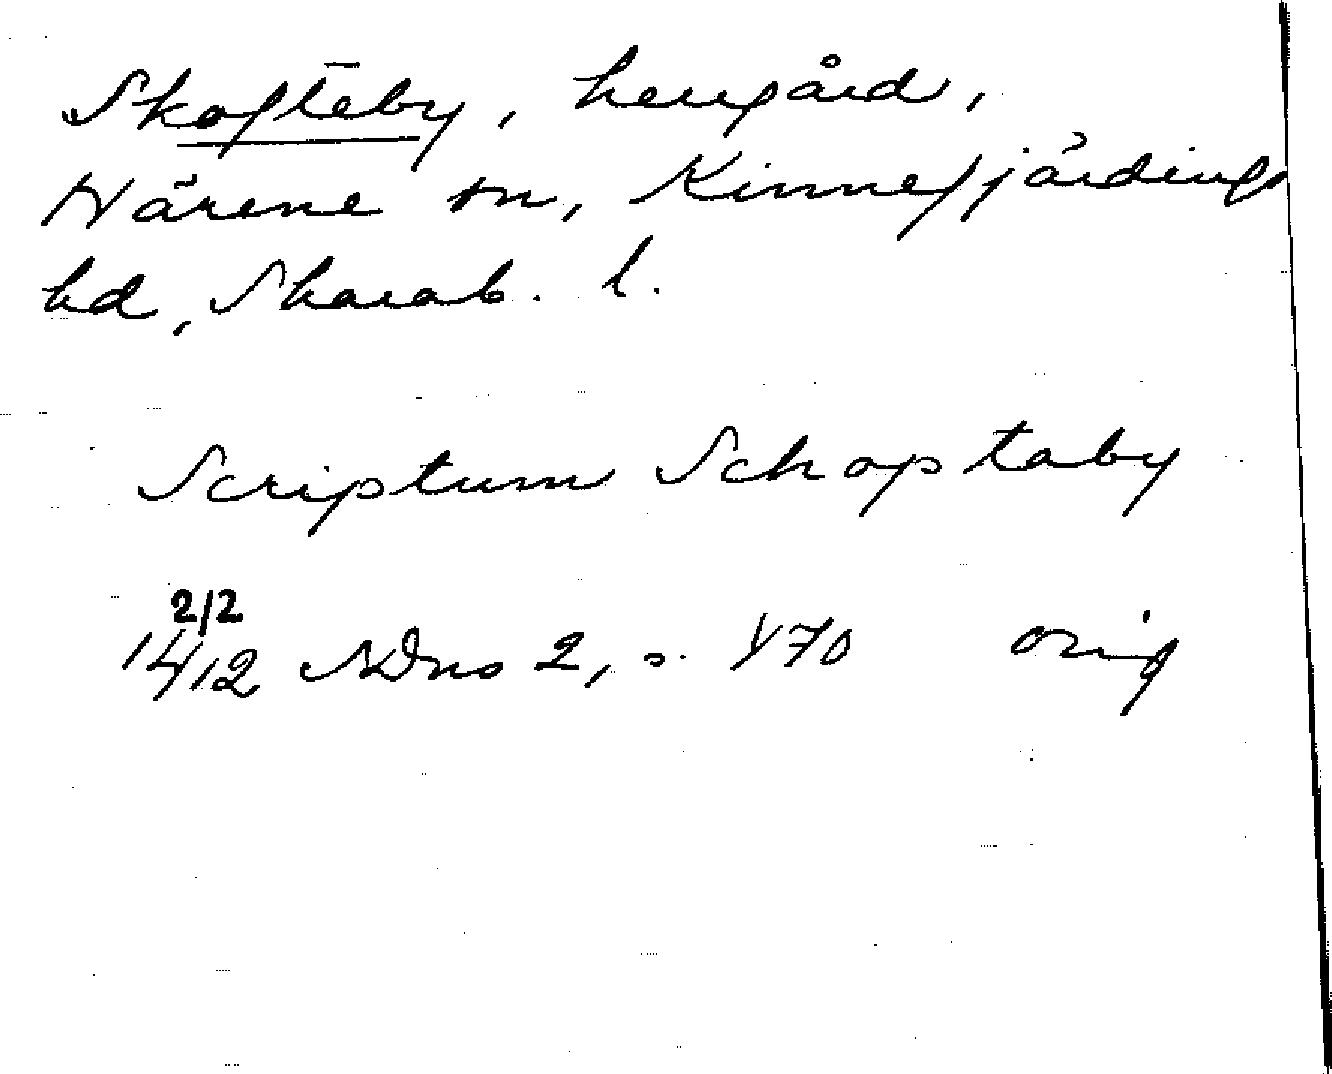 Skofteby, herrgård,
Härene sn, Kinnefjärdings
hd, Skarab. l.
Scriptum Schoptaby
2/2
1412 SDns 2, s. 470 orig